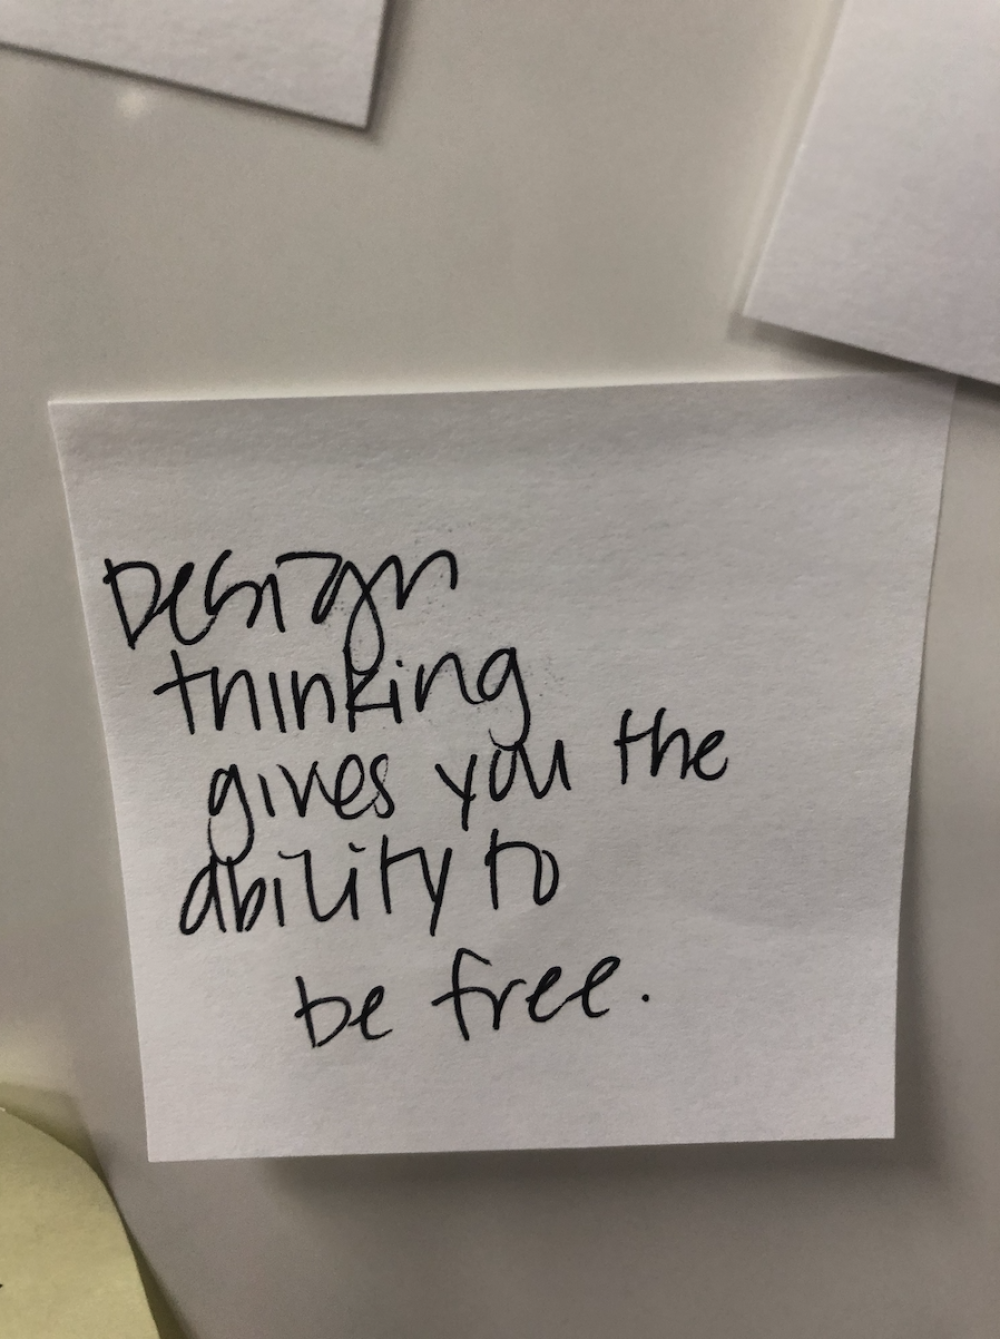 Design
thinking
gives you the
ability to
be free.